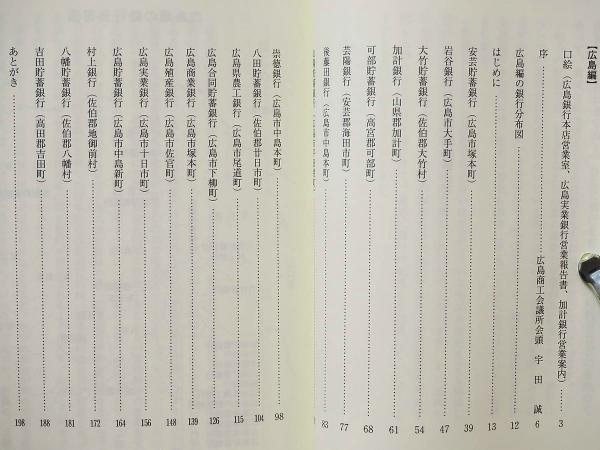 【広島編】
口絵（広島銀行本店営業室、広島実業銀行営業報告書、加計銀行営業案内）……3
序……広島商工会議所会頭 宇田 誠……6
広島編の銀行分布図……12
はじめに……13
安芸貯蓄銀行（広島市塚本町）……39
岩谷銀行（広島市大手町）……47
大竹貯蓄銀行（佐伯郡大竹村）……54
加計銀行（山県郡加計町）……61
可部貯蓄銀行（高宮郡可部町）……68
芸陽銀行（安芸郡海田市町）……77
後藤田銀行（広島市中島本町）……83
崇徳銀行（広島市中島本町）……98
八田貯蓄銀行（佐伯郡廿日市町）……104
広島県農工銀行（広島市尾道町）……115
広島合同貯蓄銀行（広島市下柳町）……126
広島商業銀行（広島市塚本町）……139
広島殖産銀行（広島市佐官町）……148
広島実業銀行（広島市十日市町）……156
広島貯蓄銀行（広島市中島新町）……164
村上銀行（佐伯郡地御前村）……172
八幡貯蓄銀行（佐伯郡八幡村）……181
吉田貯蓄銀行（高田郡吉田町）……188
あとがき……198